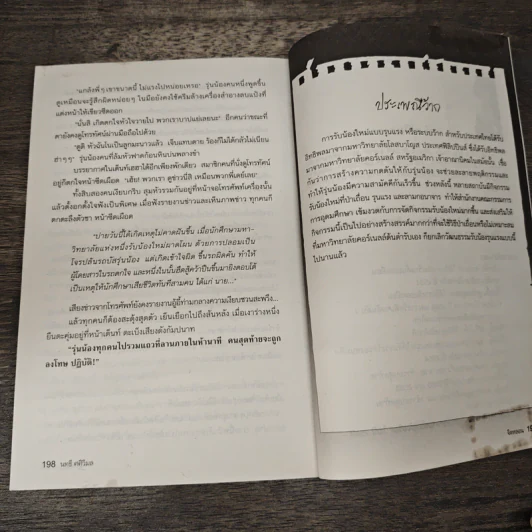 "แกล้งพี่ๆ เขาขนาดนี้ ไม่แรงไปหน่อยเหรอ" รุ่นน้องคนหนึ่งพูดขึ้น
ดูเหมือนจะรู้สึกผิดหน่อยๆ ในมือยังคงใช้ครีมล้างเครื่องสำอางลบแป้งที่
แต่งหน้าให้เขียวซีดออก
"นั่นสิ เกิดตกใจหัวใจวายไป พวกเราบาปแย่เลยนะ" อีกคนว่าขณะที่
ตายังคงดูโทรทัศน์ผ่านมือถือไปด้วย
"ดูดิ หัวฉันโนเป็นลูกมะนาวแล้ว เจ็บแทบตาย ร้องก็ไม่ได้กลัวไม่เนียน
ฮ่าๆๆ" รุ่นน้องคนที่ล้มหัวฟาดก้อนหินบ่นพลางขำ
บรรยากาศในเต็นท์เฮฮาได้อีกเพียงพักเดียว สมาชิกคนที่นั่งดูโทรทัศน์
อยู่ก็ตกใจหน้าซีดเผือด "เฮ้ย! พวกเรา ดูข่าวนี่สิ เหมือนพวกพี่เตย์เลย"
ทั้งสิบสองคนเงียบกริบ สุมหัวรวมกันอยู่ที่หน้าจอโทรศัพท์เครื่องนั้น
แล้วตั้งอกตั้งใจฟังเป็นพิเศษ เมื่อฟังรายงานข่าวและเห็นภาพข่าว ทุกคนก็
ตกตะลึงตัวชา หน้าซีดเผือด
"บ่ายวันนี้ได้เกิดเหตุไม่คาดฝันขึ้น เมื่อนักศึกษามหา-
วิทยาลัยแห่งหนึ่งรับน้องใหม่ผาดโผน ด้วยการปลอมเป็น
โจรปล้นรถบัสรุ่นน้อง แต่เกิดเข้าใจผิด ขึ้นรถผิดคัน ทำให้
ผู้โดยสารในรถตกใจ และหนึ่งในนั้นฮึดสู้คว้าปืนขึ้นมายิงตอบโต้
เป็นเหตุให้นักศึกษาเสียชีวิตทันทีสามคน ได้แก่ นาย..."
เสียงข่าวจากโทรศัพท์ยังคงรายงานอู้อี้ท่ามกลางความเงียบชวนสะพรึง...
แล้วทุกคนก็ต้องสะดุ้งสุดตัว เย็นเยือกไปถึงสันหลัง เมื่อเงาร่างหนึ่ง
ยืนตะคุ่มอยู่ที่หน้าเต็นท์ ตะเบ็งเสียงดังกัมปนาท
"รุ่นน้องทุกคนไปรวมแถวที่ลานภายในห้านาที คนสุดท้ายจะถูก
ลงโทษ ปฏิบัติ!"
198
ประเพณีว้าก
การรับน้องใหม่แบบรุนแรง หรือระบบว้าก สำหรับประเทศไทยได้รับ
อิทธิพลมาจากมหาวิทยาลัยโลสบาโญส ประเทศฟิลิปปินส์ ซึ่งได้รับอิทธิพล
มาจากมหาวิทยาลัยคอร์เนลล์ สหรัฐอเมริกา เจ้าอาณานิคมในสมัยนั้น เชื่อ
กันว่าการสร้างความกดดันให้กับรุ่นน้อง จะช่วยละลายพฤติกรรมและ
ทำให้รุ่นน้องมีความสามัคคีกันเร็วขึ้น ช่วงหลังนี้ หลายสถาบันมีกิจกรรม
รับน้องใหม่ที่ป่าเถื่อน รุนแรง และลามกอนาจาร ทำให้สำนักงานคณะกรรมการ
การอุดมศึกษา เข้มงวดกับการจัดกิจกรรมรับน้องใหม่มากขึ้น และส่งเสริมให้
กิจกรรมนี้เป็นไปอย่างสร้างสรรค์มากกว่าที่จะใช้วิธีป่าเถื่อนหรือไม่เหมาะสม
ที่มหาวิทยาลัยคอร์เนลล์ต้นตำรับเอง ก็ยกเลิกวัฒนธรรมรับน้องรุนแรงแบบนี้
ไปนานแล้ว